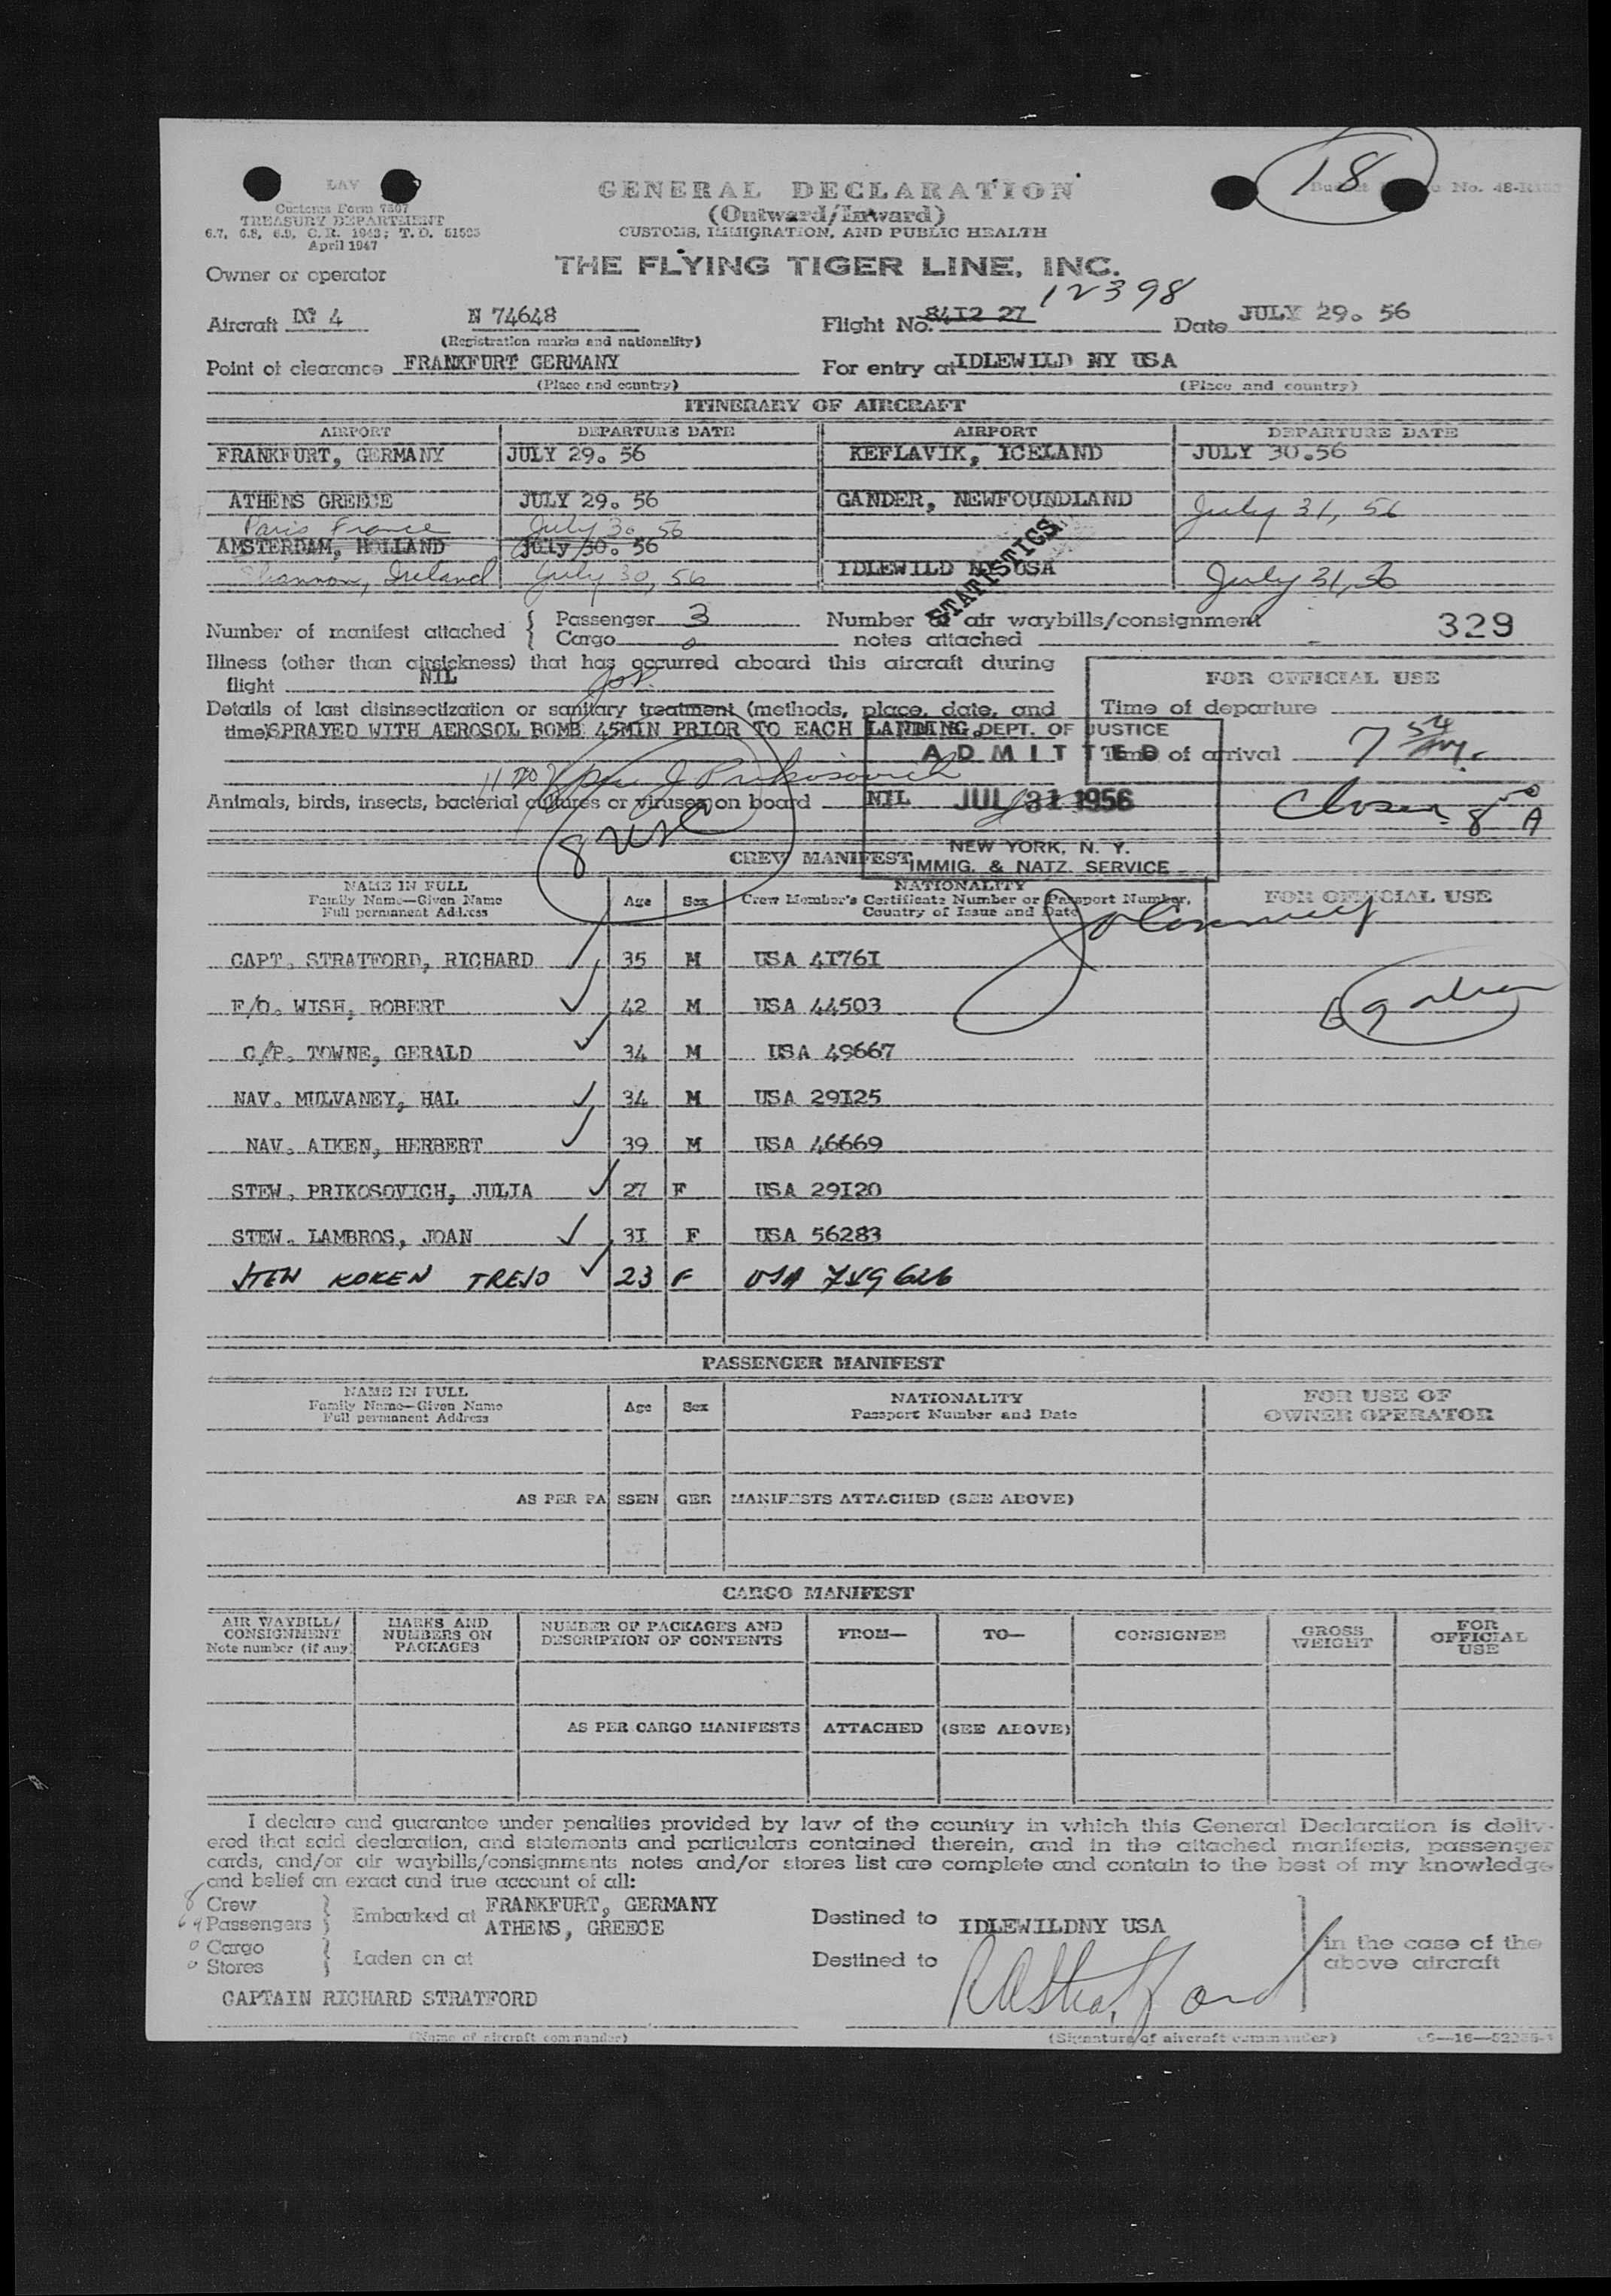 18
LAV
Customs Form 7507
TREASURY DEPARTMENT
6.7, 6.8, 6.9, C.R. 1943; T.D. 51503
April 1947
GENERAL DECLARATION
(Outward/Inward)
CUSTOMS, IMMIGRATION, AND PUBLIC HEALTH
No. 48-R
Owner or operator
THE FLYING TIGER LINE, INC.
12398
Aircraft DC 4 N 74648 Flight No. 84I2 27 Date JULY 29. 56
(Registration marks and nationality)
Point of clearance FRANKFURT GERMANY For entry at IDLEWILD NY USA
(Place and country) (Place and country)
ITINERARY OF AIRCRAFT
AIRPORT DEPARTURE DATE AIRPORT DEPARTURE DATE
FRANKFURT, GERMANY JULY 29. 56 KEFLAVIK, ICELAND JULY 30.56
ATHENS GREECE JULY 29. 56 GANDER, NEWFOUNDLAND July 31, 56
Paris France July 30 56
AMSTERDAM, HOLLAND July 30. 56
Shannon, Ireland July 30, 56 IDLEWILD NY USA July 31, 56
STATISTICS
Number of manifest attached Passenger 3 Number of air waybills/consignment
Cargo 0 notes attached -
329
Illness (other than airsickness) that has occurred aboard this aircraft during
flight NIL
FOR OFFICIAL USE
Details of last disinsectization or sanitary treatment (methods, place, date, and
Time of departure
time) SPRAYED WITH AEROSOL BOMB 45MIN PRIOR TO EACH LANDING.
DEPT. OF JUSTICE
ADMITTED
Time of arrival 7 54
J Prikosovich
Animals, birds, insects, bacterial cultures or viruses, on board NIL
JUL 31 1956
8 USC
NEW YORK, N. Y.
IMMIG. & NATZ. SERVICE
CREW MANIFEST
NAME IN FULL
Family Name—Given Name
Full permanent Address
Age Sex
NATIONALITY
Crew Member's Certificate Number or Passport Number,
Country of Issue and Date
FOR OFFICIAL USE
CAPT. STRATFORD, RICHARD 35 M USA 4I76I
F/O. WISH, ROBERT 42 M USA 44503
C/P. TOWNE, GERALD 34 M USA 49667
NAV. MULVANEY, HAL 34 M USA 29I25
NAV. AIKEN, HERBERT 39 M USA 46669
STEW. PRIKOSOVICH, JULIA 27 F USA 29I20
STEW. LAMBROS, JOAN 3I F USA 56283
STEW KOKEN 23 F USA
PASSENGER MANIFEST
NAME IN FULL
Family Name—Given Name
Full permanent Address
Age Sex
NATIONALITY
Passport Number and Date
FOR USE OF
OWNER OPERATOR
AS PER PASSENGER MANIFESTS ATTACHED (SEE ABOVE)
CARGO MANIFEST
AIR WAYBILL/
CONSIGNMENT
Note number (if any)
MARKS AND
NUMBERS ON
PACKAGES
NUMBER OF PACKAGES AND
DESCRIPTION OF CONTENTS
FROM—
TO—
CONSIGNEE
GROSS
WEIGHT
FOR
OFFICIAL
USE
AS PER CARGO MANIFESTS ATTACHED (SEE ABOVE)
I declare and guarantee under penalties provided by law of the country in which this General Declaration is deliv-
ered that said declaration, and statements and particulars contained therein, and in the attached manifests, passenger
cards, and/or air waybills/consignments notes and/or stores list are complete and contain to the best of my knowledge
and belief an exact and true account of all:
8 Crew
Passengers
Embarked at FRANKFURT, GERMANY
ATHENS, GREECE
Destined to IDLEWILDNY USA
0 Cargo
0 Stores
Laden on at
Destined to
in the case of the
above aircraft
CAPTAIN RICHARD STRATFORD
RA Stratford
(Name of aircraft commander) (Signature of aircraft commander)